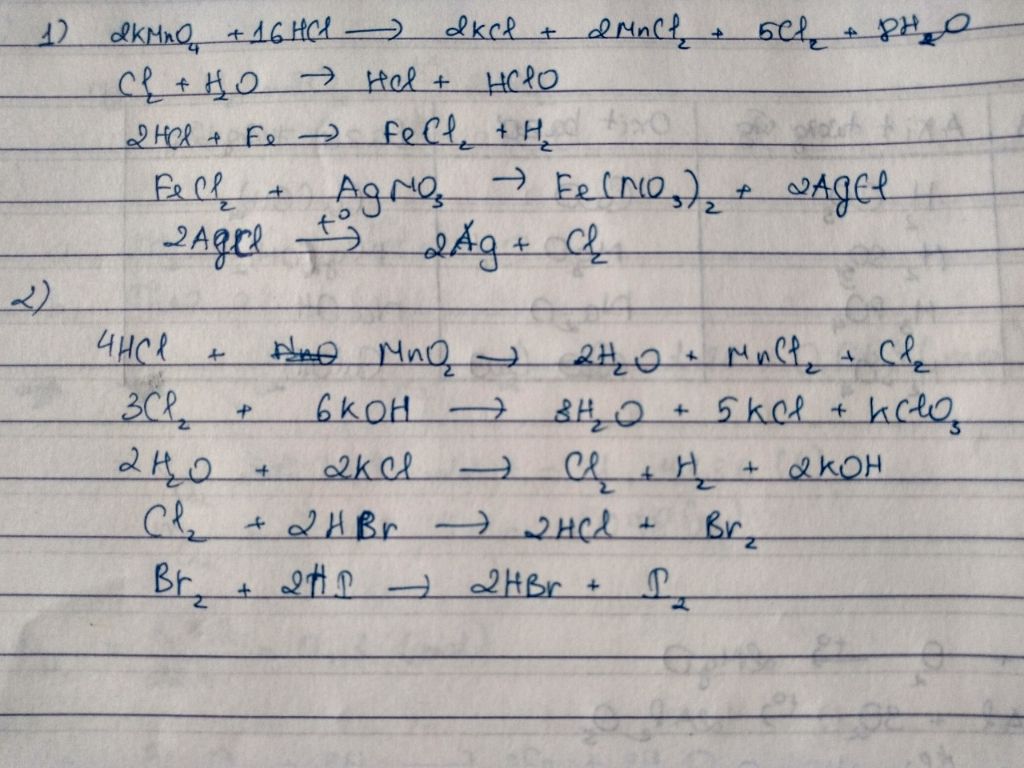 1) 2KMnO₄ + 16HCl → 2KCl + 2MnCl₂ + 5Cl₂ + 8H₂O
Cl₂ + H₂O → HCl + HClO
2HCl + Fe → FeCl₂ + H₂
FeCl₂ + AgNO₃ → Fe(NO₃)₂ + 2AgCl
2AgCl →(t°) 2Ag + Cl₂
2)
4HCl + MnO₂ → 2H₂O + MnCl₂ + Cl₂
3Cl₂ + 6KOH → 3H₂O + 5KCl + KClO₃
2H₂O + 2KCl → Cl₂ + H₂ + 2KOH
Cl₂ + 2HBr → 2HCl + Br₂
Br₂ + 2HI → 2HBr + I₂